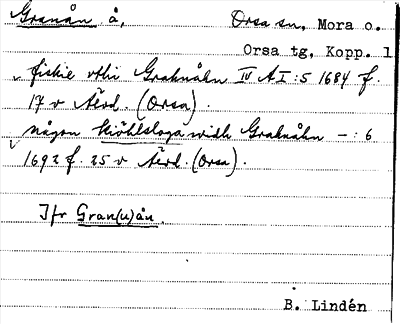 Granån å, Orsa sn, Mora o.
Orsa tg, Kopp. l
fiskie vthi Graknåhn IV A I:5 1684 f.
17 v Ärend. (Orsa).
någon Kiöhlsloga widh Graknåhn - : 6
1692 f. 25 v Ärend. (Orsa).
Jfr Gran(u)ån.
B. Lindén